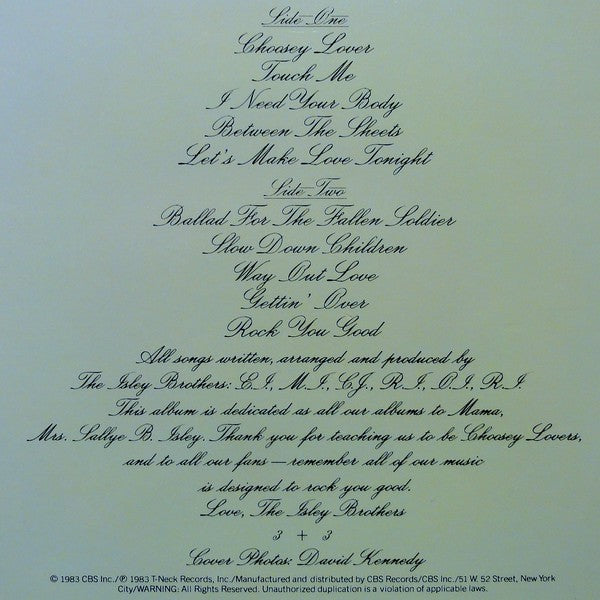 Side One
Choosey Lover
Touch Me
I Need Your Body
Between The Sheets
Let's Make Love Tonight
Side Two
Ballad For The Fallen Soldier
Slow Down Children
Way Out Love
Gettin' Over
Rock You Good
All songs written, arranged and produced by
The Isley Brothers: E.I., M.I., C.J., R.I., O.I., R.I.
This album is dedicated as all our albums to Mama,
Mrs. Sallye B. Isley. Thank you for teaching us to be Choosey Lovers,
and to all our fans — remember all of our music
is designed to rock you good.
Love, The Isley Brothers
3 + 3
Cover Photos: David Kennedy
© 1983 CBS Inc./℗ 1983 T-Neck Records, Inc./Manufactured and distributed by CBS Records/CBS Inc./51 W. 52 Street, New York
City/WARNING: All Rights Reserved. Unauthorized duplication is a violation of applicable laws.